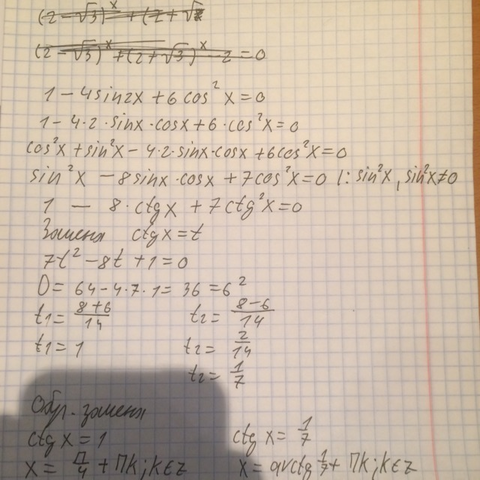 (2-√3)^x + (2+√3
(2-√3)^x + (2+√3)^x - 2 = 0
1 - 4sin2x + 6cos²x = 0
1 - 4·2·sinx·cosx + 6·cos²x = 0
cos²x + sin²x - 4·2·sinx·cosx + 6cos²x = 0
sin²x - 8sinx·cosx + 7cos²x = 0 |: sin²x, sin²x≠0
1 - 8·ctgx + 7ctg²x = 0
Замена ctgx = t
7t² - 8t + 1 = 0
D = 64 - 4·7·1 = 36 = 6²
t₁ = (8+6)/14 t₂ = (8-6)/14
t₁ = 1 t₂ = 2/14
t₂ = 1/7
Обр. замена
ctgx = 1 ctgx = 1/7
x = π/4 + πk; k∈z x = arcctg 1/7 + πk; k∈z